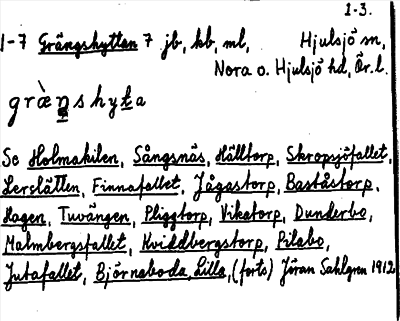 1-3.
1-7 Grängshyttan 7 jb, kb, ml, Hjulsjö sn,
Nora o. Hjulsjö hd, Ör. l.
græ̀ŋshyt̲a
Se Holmakilen, Sångsnäs, Hälltorp, Skropsjöfallet,
Lerslätten, Finnafallet, Jågastorp, Baståstorp,
Hagen, Tuvängen, Pliggtorp, Vikatorp, Dunderbo,
Malmbergsfallet, Kviddbergstorp, Pilabo,
Jutafallet, Björnaboda, Lilla, (forts) Jöran Sahlgren 1912